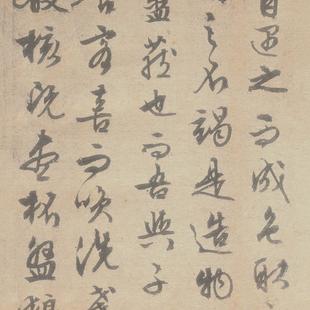 目遇之而成色取
之不竭是造物
盡藏也而吾與子
客喜而咲洗盞
殽核既盡杯盤狼